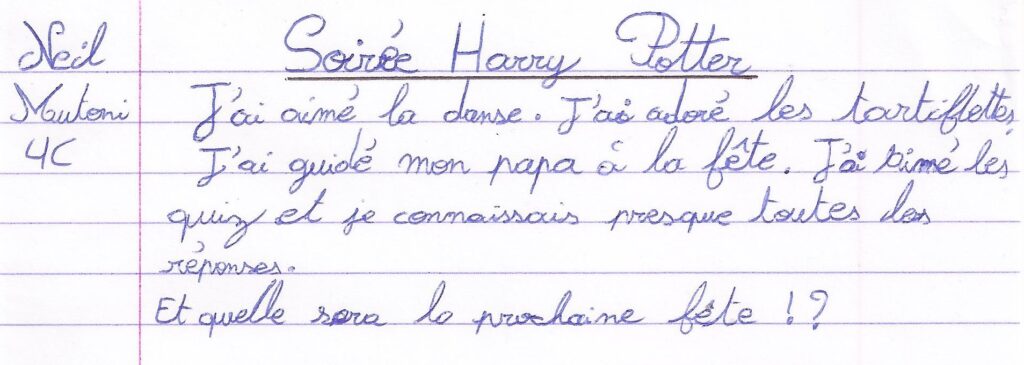 Neil
Soirée Harry Potter
Mutoni
J'ai aimé la danse. J'ai adoré les tartiflettes.
4C
J'ai guidé mon papa à la fête. J'ai aimé les
quiz et je connaissais presque toutes les
réponses.
Et quelle sera la prochaine fête !?